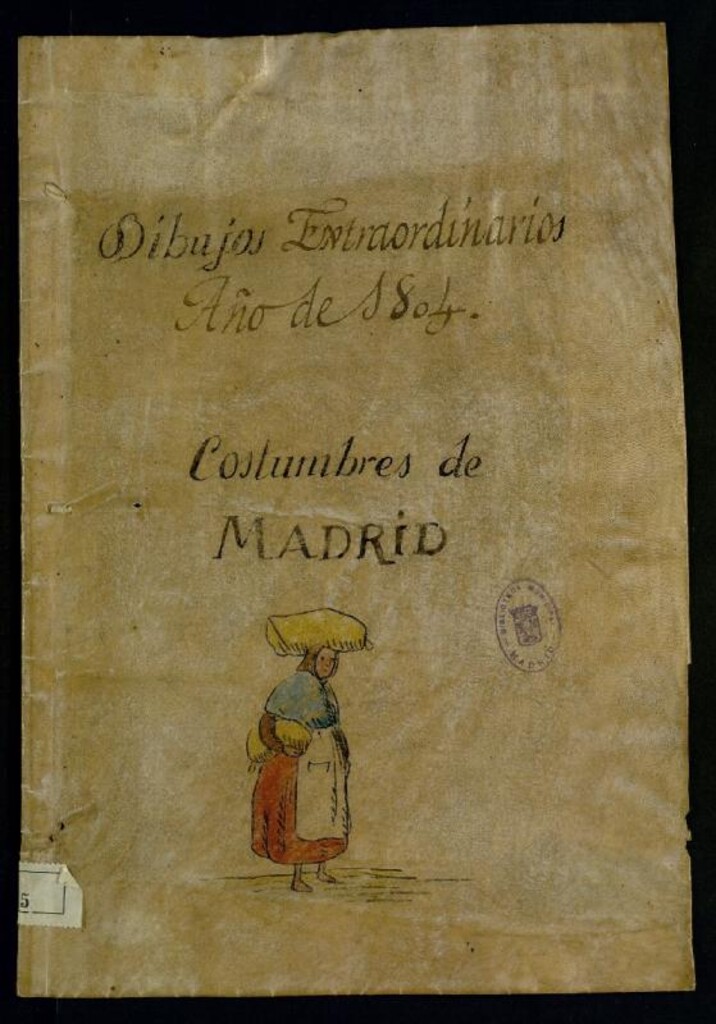 Dibujos Extraordinarios
Año de 1804.
Costumbres de
MADRID
BIBLIOTECA MUNICIPAL
MADRID
5